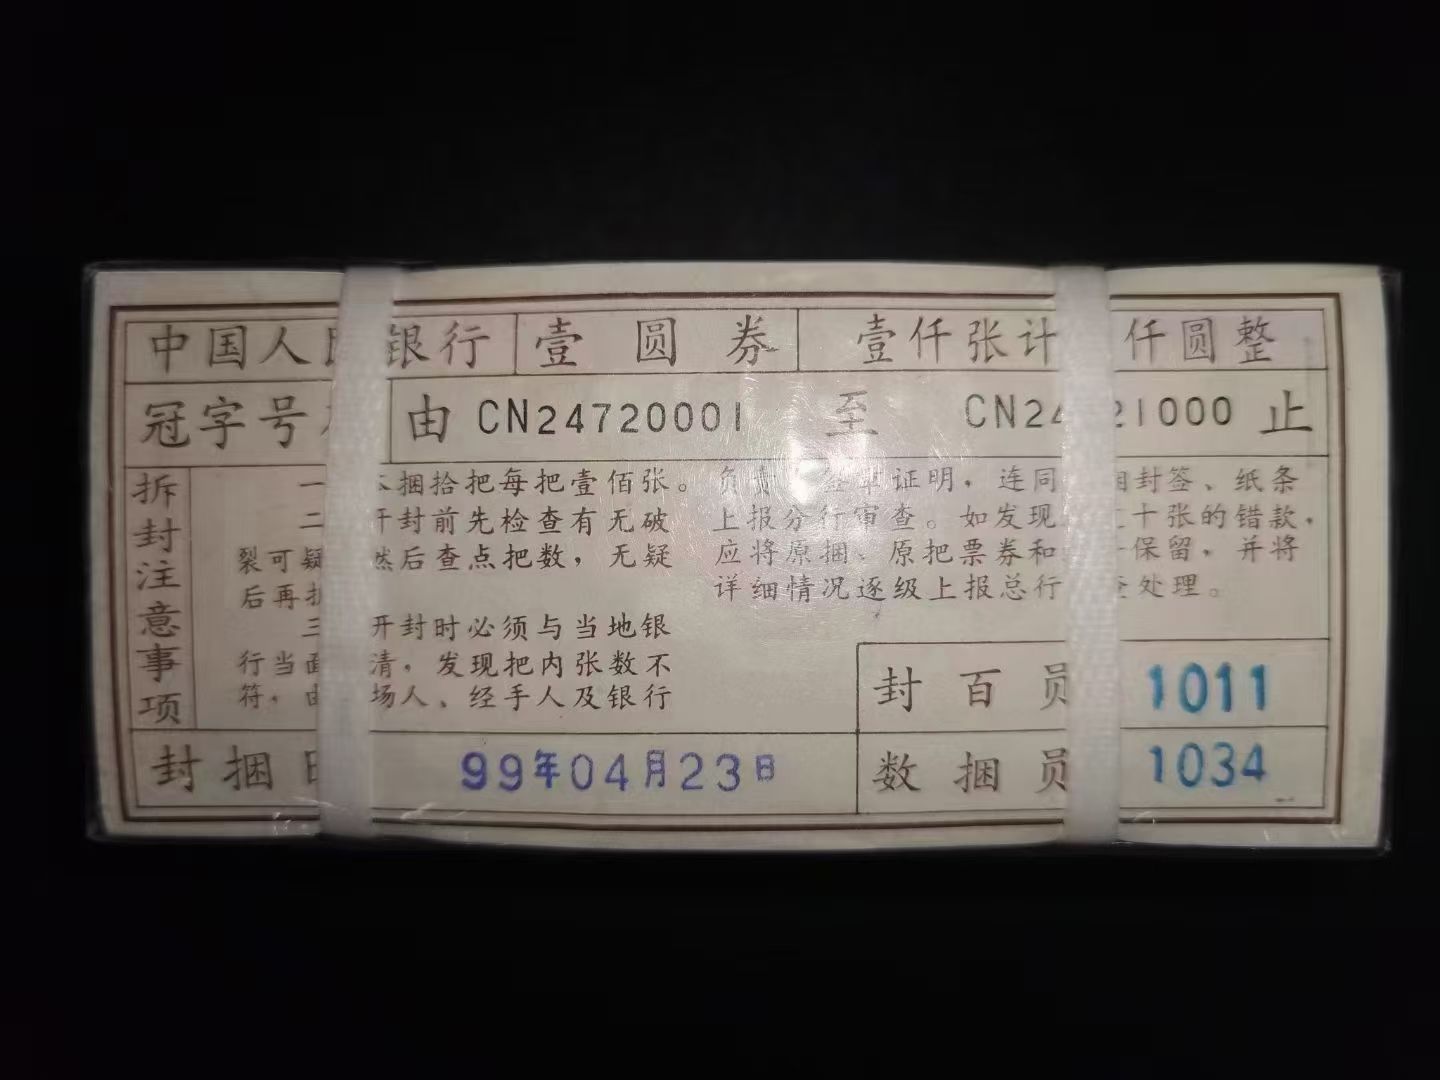 中国人民银行 壹圆券 壹仟张计 仟圆整
冠字号 由 CN24720001 至 CN24 21000 止
拆封注意事项
一 本捆拾把每把壹佰张。
二 开封前先检查有无破
裂可疑 然后查点把数，无疑
后再拆
三 开封时必须与当地银
行当面 清，发现把内张数不
符，由 场人、经手人及银行
负责 签章证明，连同 封签、纸条
上报分行审查。如发现 十张的错款，
应将原捆、原把票券和 保留，并将
详细情况逐级上报总行 查处理。
封百员 1011
封捆日 99年04月23日 数捆员 1034